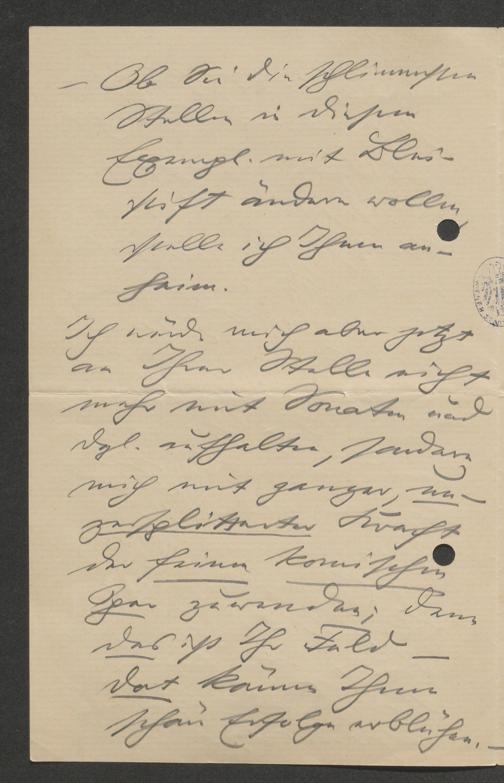 – Ob Sie die schlimmsten
Stellen in diesem
Exempl. mit Blei-
stift ändern wollen,
stelle ich Ihnen an-
heim.
Ich würde mich aber jetzt
an Ihrer Stelle nicht
mehr mit Sonaten und
dgl. aufhalten, sondern
mich mit ganzer, un-
zersplitterter Kraft
der feinen komischen
Oper zuwenden; denn
das ist Ihr Feld –
dort können Ihnen
schön Erfolge erblühen. –